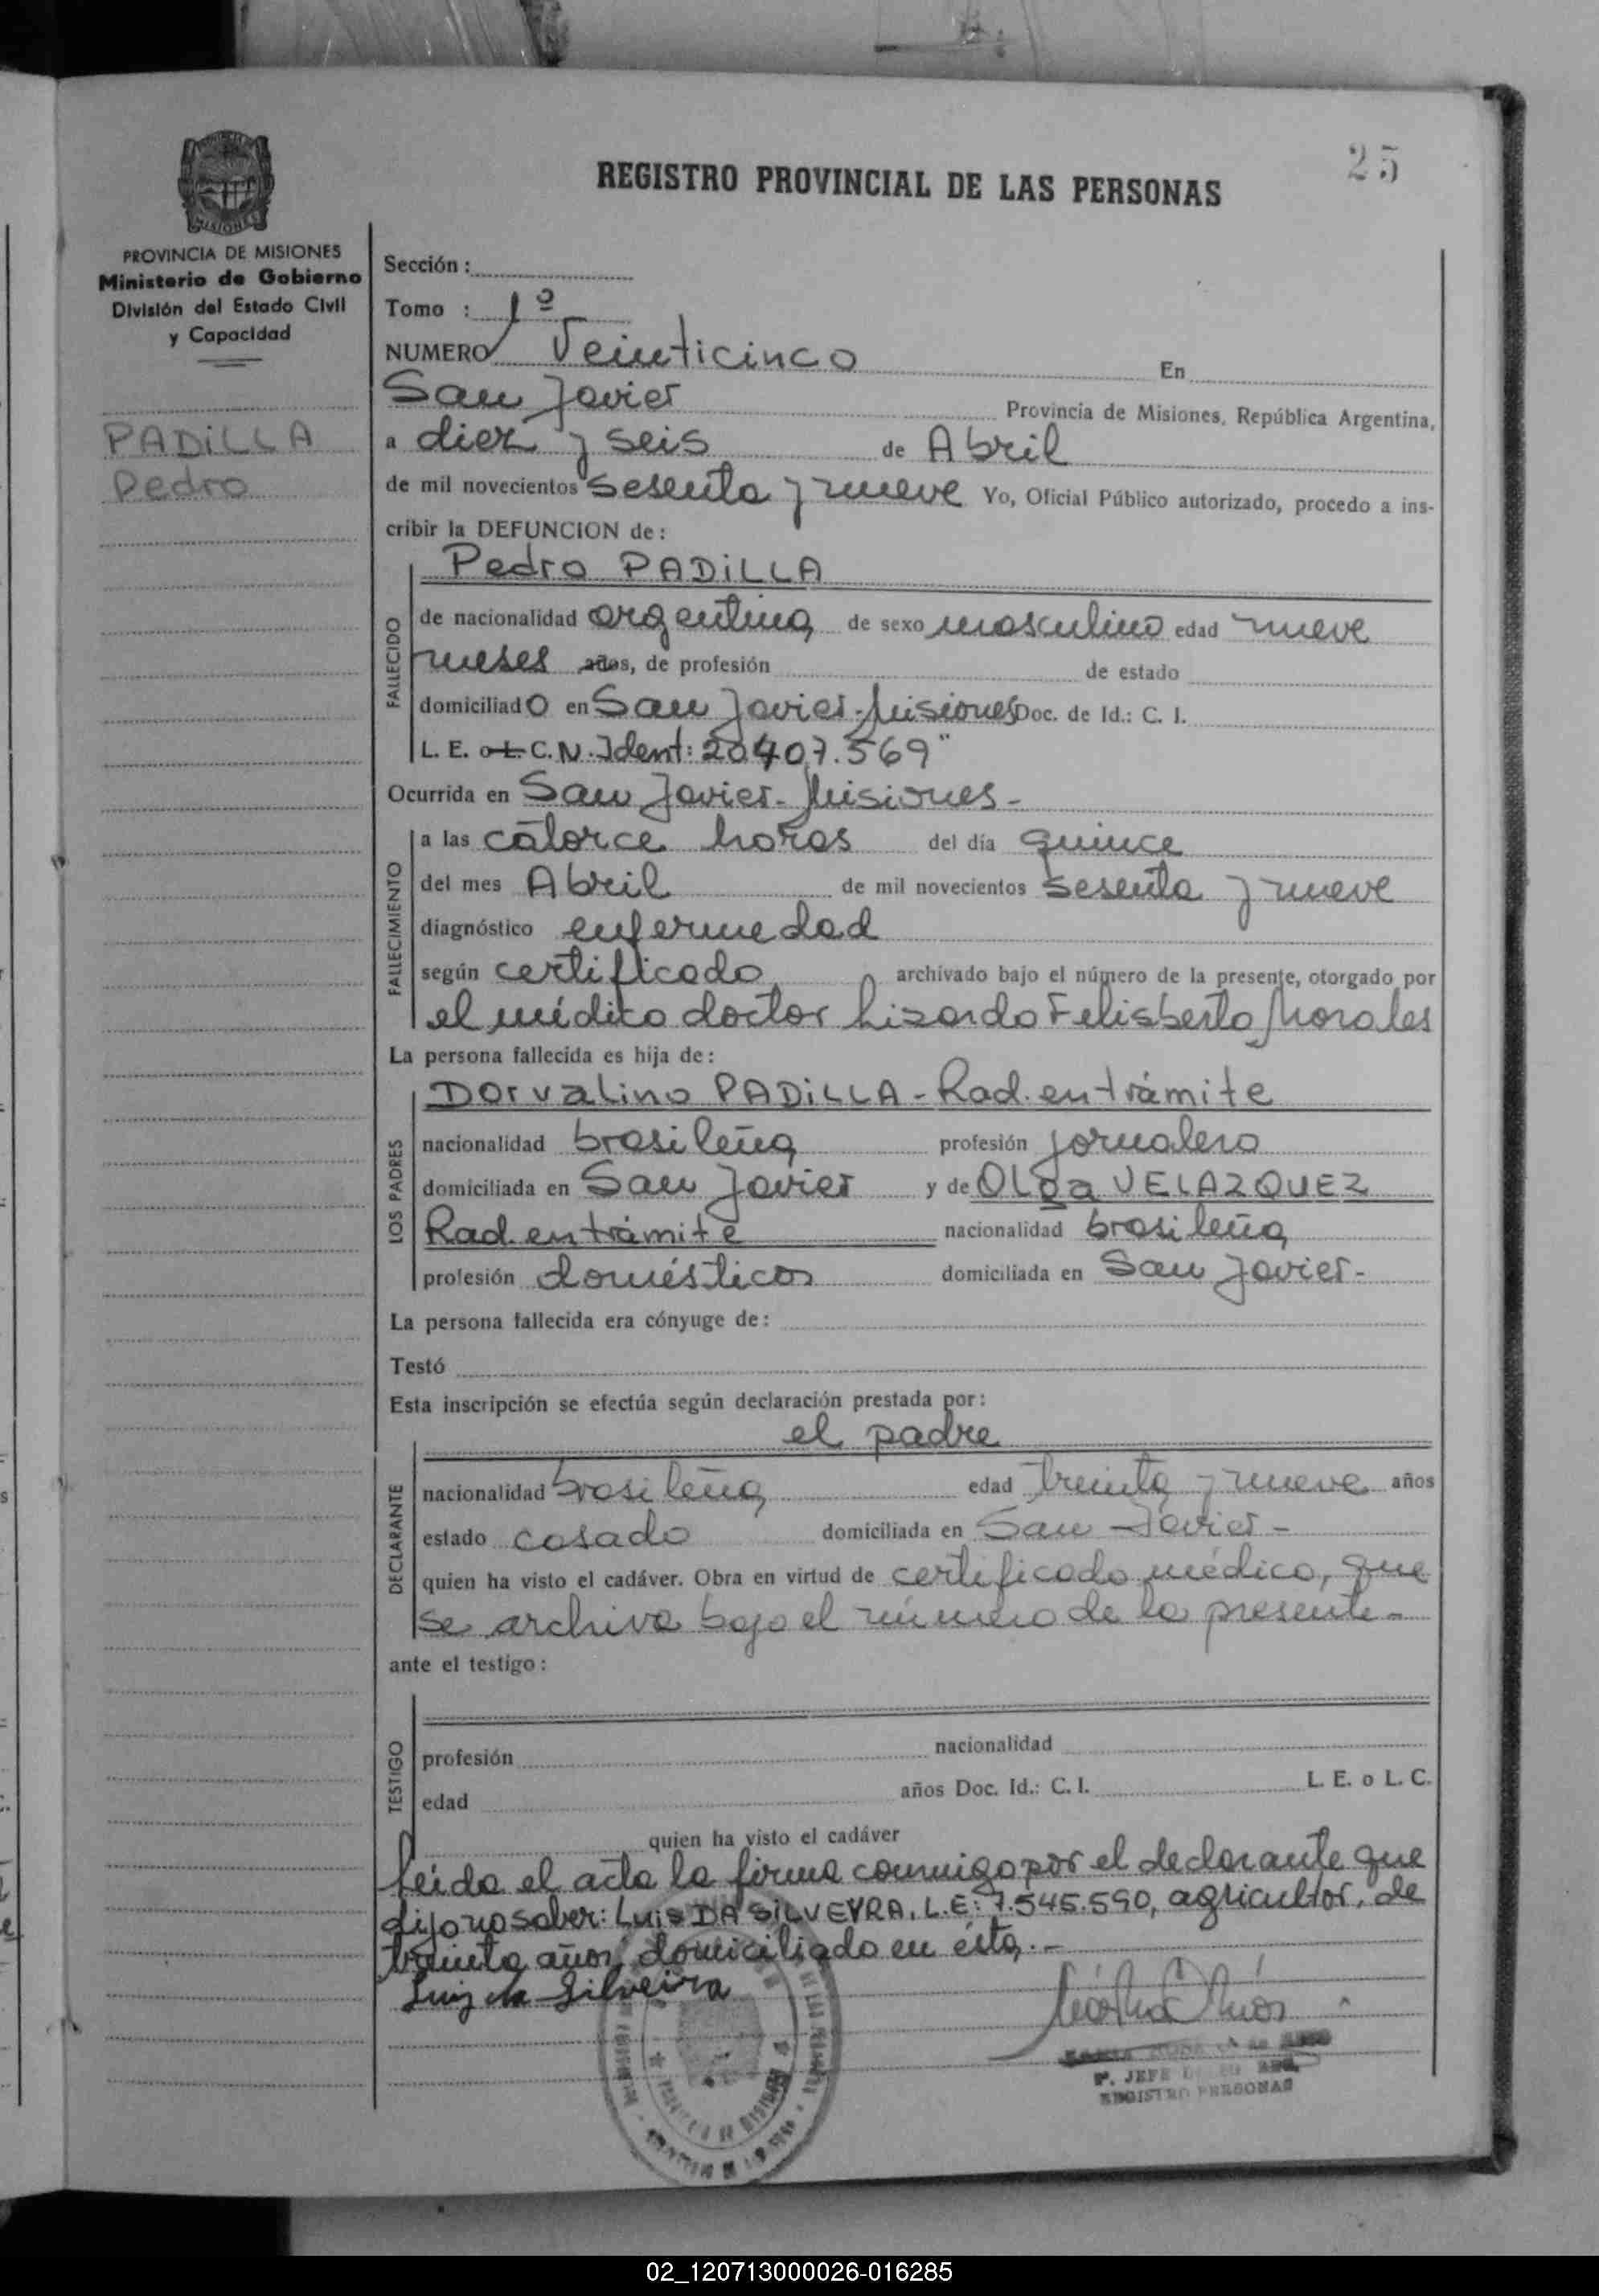 25
REGISTRO PROVINCIAL DE LAS PERSONAS
PROVINCIA DE MISIONES
Ministerio de Gobierno
División del Estado Civil
y Capacidad
PADiLLA
Pedro
Sección :
Tomo : 1º
NUMERO Veinticinco En
San Javier Provincia de Misiones, República Argentina,
a diez y seis de Abril
de mil novecientos sesenta y nueve Yo, Oficial Público autorizado, procedo a ins-
cribir la DEFUNCION de :
Pedro PADiLLA
FALLECIDO
de nacionalidad argentina de sexo masculino edad nueve
meses años, de profesión de estado
domiciliado en San Javier-Misiones Doc. de Id.: C. I.
L. E. o L. C. N. Ident: 20407.569"
Ocurrida en San Javier-Misiones-
FALLECIMIENTO
a las catorce horas del día quince
del mes Abril de mil novecientos sesenta y nueve
diagnóstico enfermedad
según certificado archivado bajo el número de la presente, otorgado por
el médico doctor Lizardo Felisberto Morales
La persona fallecida es hija de :
LOS PADRES
Dorvalino PADiLLA - Rad. en trámite
nacionalidad brasileña profesión jornalero
domiciliada en San Javier y de OLga VELAZQUEZ
Rad. en trámite nacionalidad brasileña
profesión domésticos domiciliada en San Javier-
La persona fallecida era cónyuge de :
Testó
Esta inscripción se efectúa según declaración prestada por :
el padre
DECLARANTE
nacionalidad brasileña edad treinta y nueve años
estado casado domiciliada en San Javier-
quien ha visto el cadáver. Obra en virtud de certificado médico, que
se archiva bajo el número de la presente-
ante el testigo :
TESTIGO
profesión nacionalidad
edad años Doc. Id.: C. I. L. E. o L. C.
quien ha visto el cadáver
Leída el acta la firma conmigo por el declarante que
dijo no saber: Luis DA SiLVEYRA. L.E: 7.545.590, agricultor, de
treinta años, domiciliado en ésta.-
Luiz da Silveira
JEFE
REGISTRO PERSONAS
02_120713000026-016285